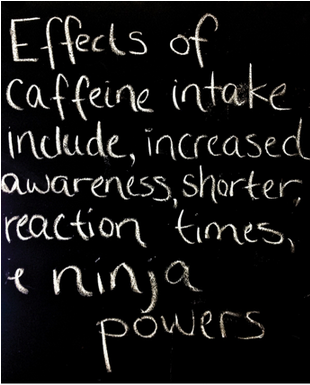 Effects of
caffeine intake
include, increased
awareness, shorter,
reaction times,
& ninja
powers